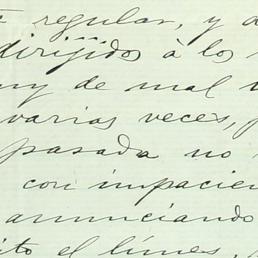 regular, y a
dirijidos à los
uy de mal
varias veces,
pasada no
con impacien
anunciando
ito el lúnes,